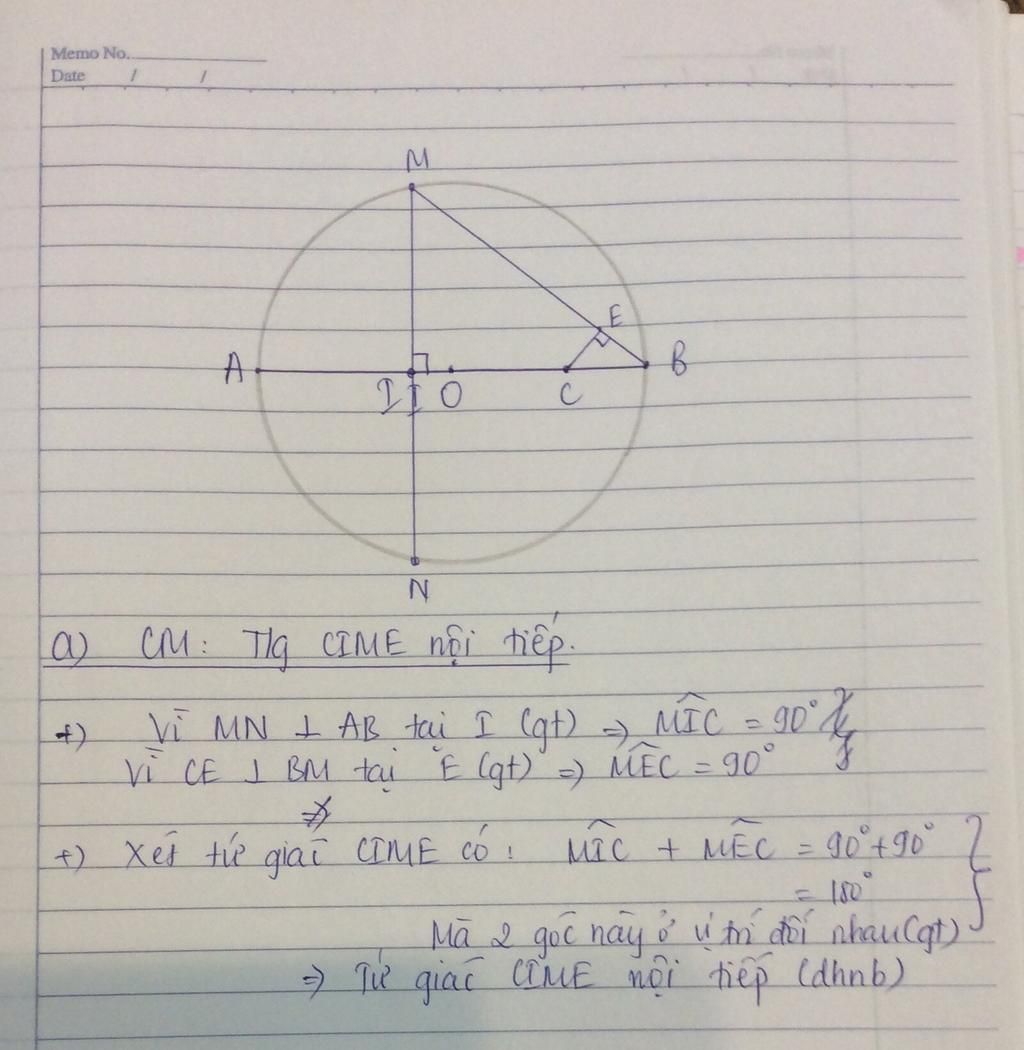 Memo No.
Date / /
M
E
A
B
I I O
C
N
a) CM: Tlg CIME nội tiếp.
+) Vì MN ⊥ AB tại I (gt) => M̂IC = 90°
Vì CE ⊥ BM tại E (gt) => M̂EC = 90°
+) Xét tứ giác CIME có: M̂IC + M̂EC = 90° + 90°
= 180°
Mà 2 góc này ở vị trí đối nhau (gt)
=> Tứ giác CIME nội tiếp (dhnb)